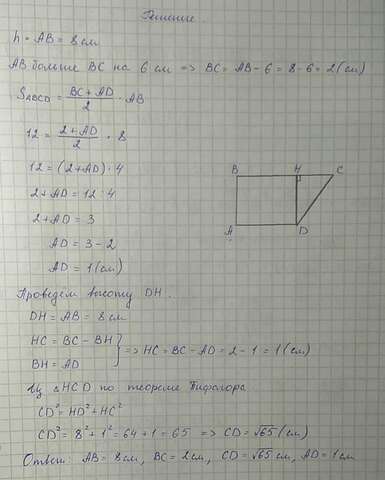 Решение.
h = AB = 8 см
AB больше BC на 6 см => BC = AB - 6 = 8 - 6 = 2 (см)
S_ABCD = (BC + AD)/2 · AB
12 = (2 + AD)/2 · 8
12 = (2 + AD) · 4
2 + AD = 12 : 4
2 + AD = 3
AD = 3 - 2
AD = 1 (см)
B H C
A D
Проведём высоту DH.
DH = AB = 8 см
HC = BC - BH
BH = AD } => HC = BC - AD = 2 - 1 = 1 (см)
Из △HCD по теореме Пифагора
CD² = HD² + HC²
CD² = 8² + 1² = 64 + 1 = 65 => CD = √65 (см)
Ответ: AB = 8 см, BC = 2 см, CD = √65 см, AD = 1 см